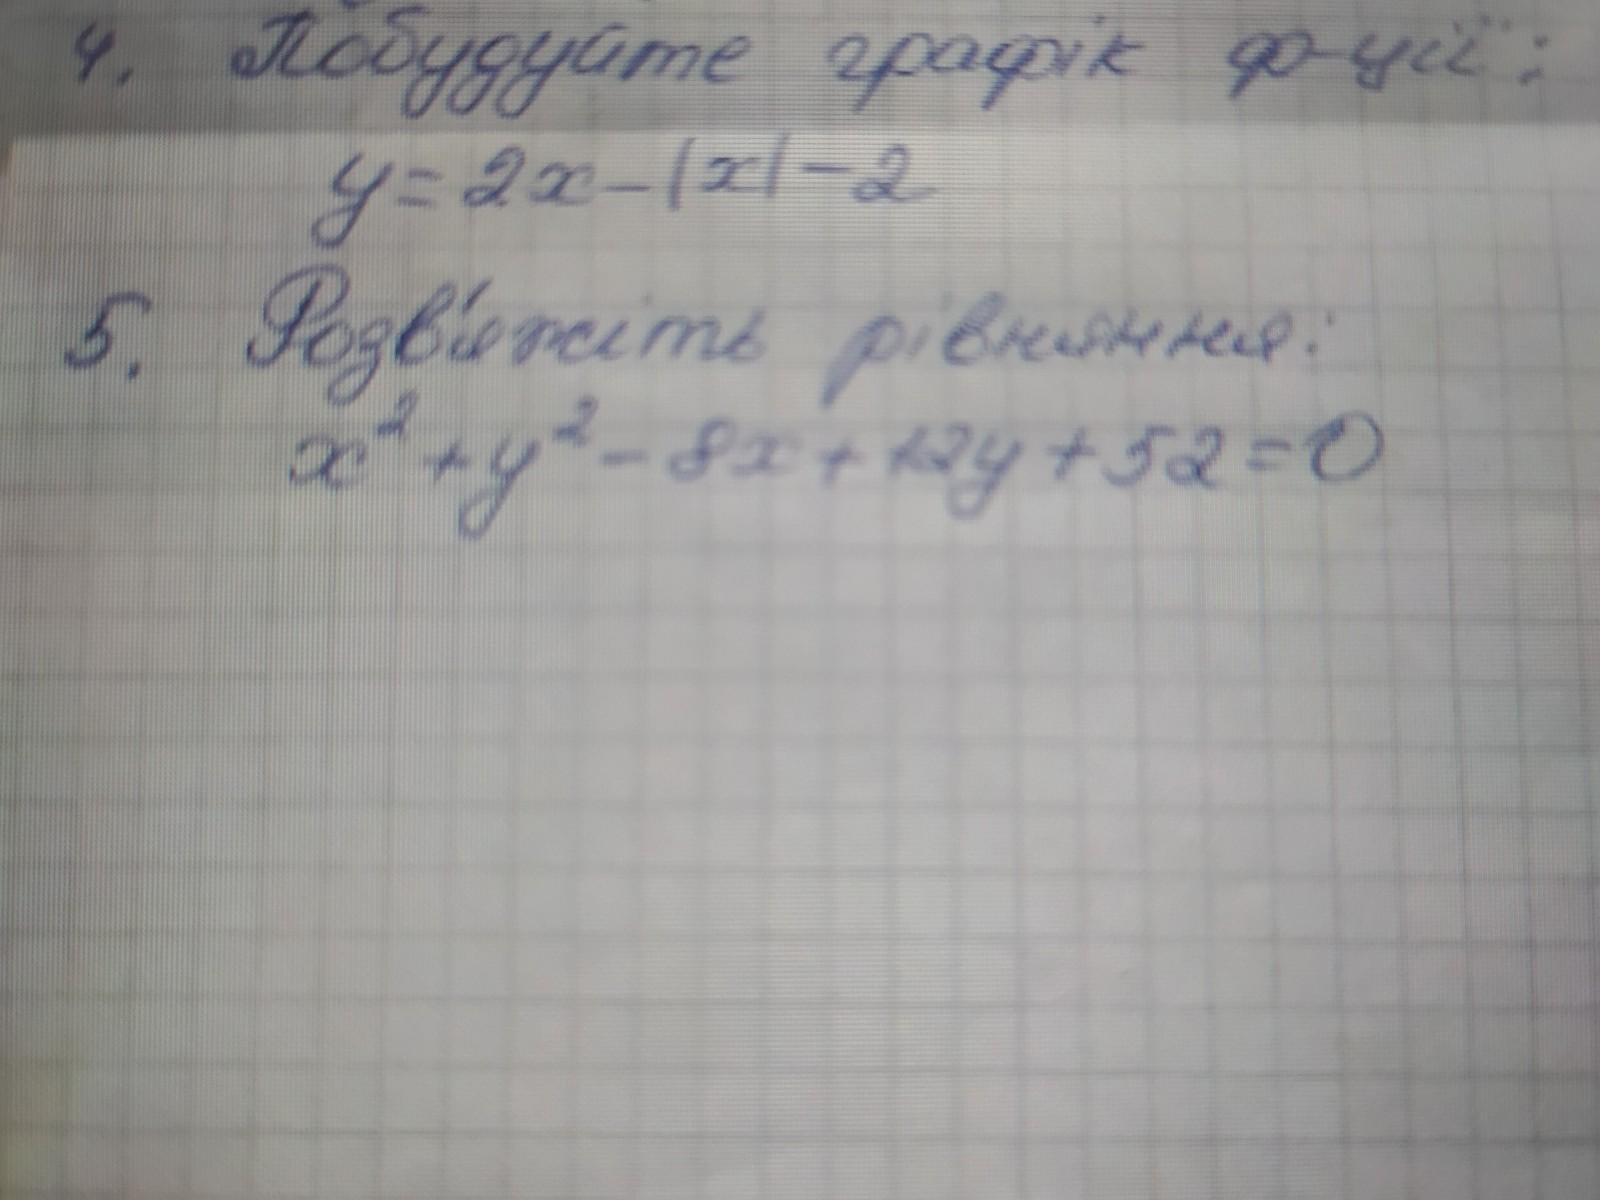 4. Побудуйте графік ф-ції:
y = 2x - |x| - 2
5. Розв'яжіть рівняння:
x² + y² - 8x + 12y + 52 = 0